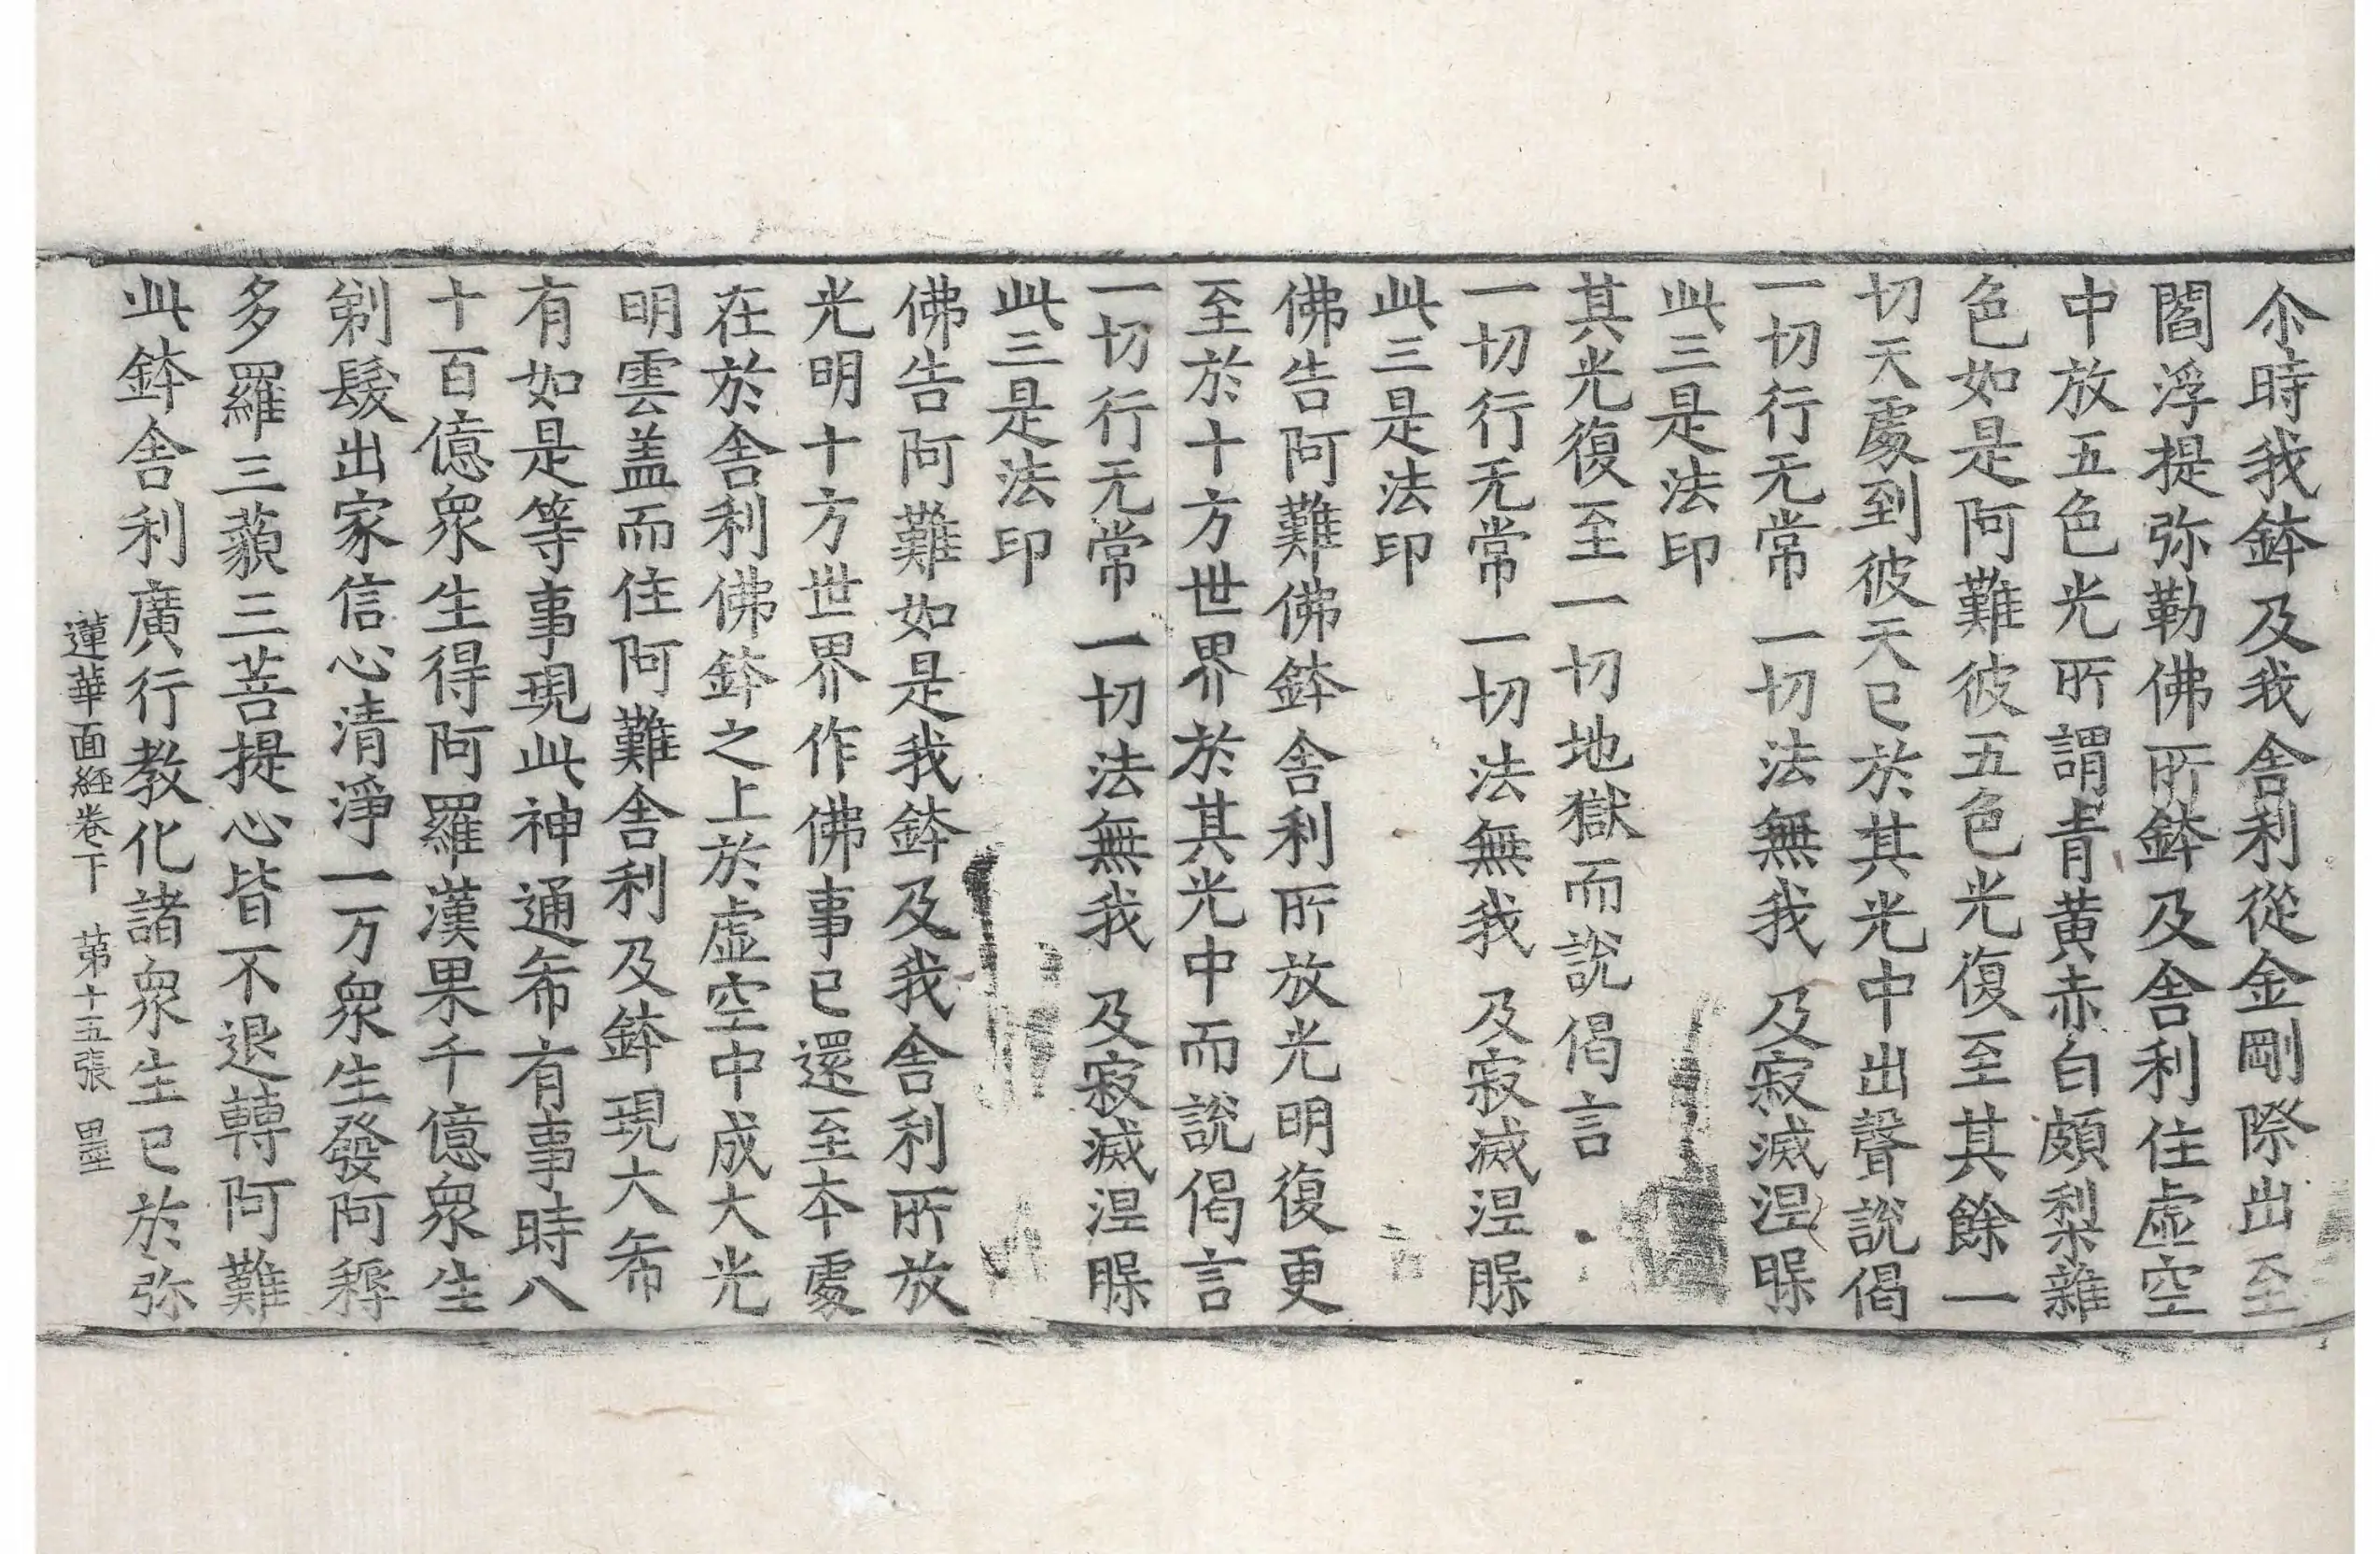 尒時我鉢及我舍利從金剛際出至
閻浮提弥勒佛所鉢及舍利住虛空
中放五色光所謂青黄赤白頗梨雜
色如是阿難彼五色光復至其餘一
切天處到彼天已於其光中出聲說偈
一切行无常 一切法無我 及寂滅涅槃
此三是法印
其光復至一切地獄而說偈言
一切行无常 一切法無我 及寂滅涅槃
此三是法印
佛告阿難佛鉢舍利所放光明復更
至於十方世界於其光中而說偈言
一切行无常 一切法無我 及寂滅涅槃
此三是法印
佛告阿難如是我鉢及我舍利所放
光明十方世界作佛事已還至本處
在於舍利佛鉢之上於虛空中成大光
明雲盖而住阿難舍利及鉢現大希
有如是等事現此神通希有事時八
十百億衆生得阿羅漢果千億衆生
剃髮出家信心清淨一万衆生發阿耨
多羅三藐三菩提心皆不退轉阿難
此鉢舍利廣行教化諸衆生已於弥
蓮華面経卷下 第十五張 墨